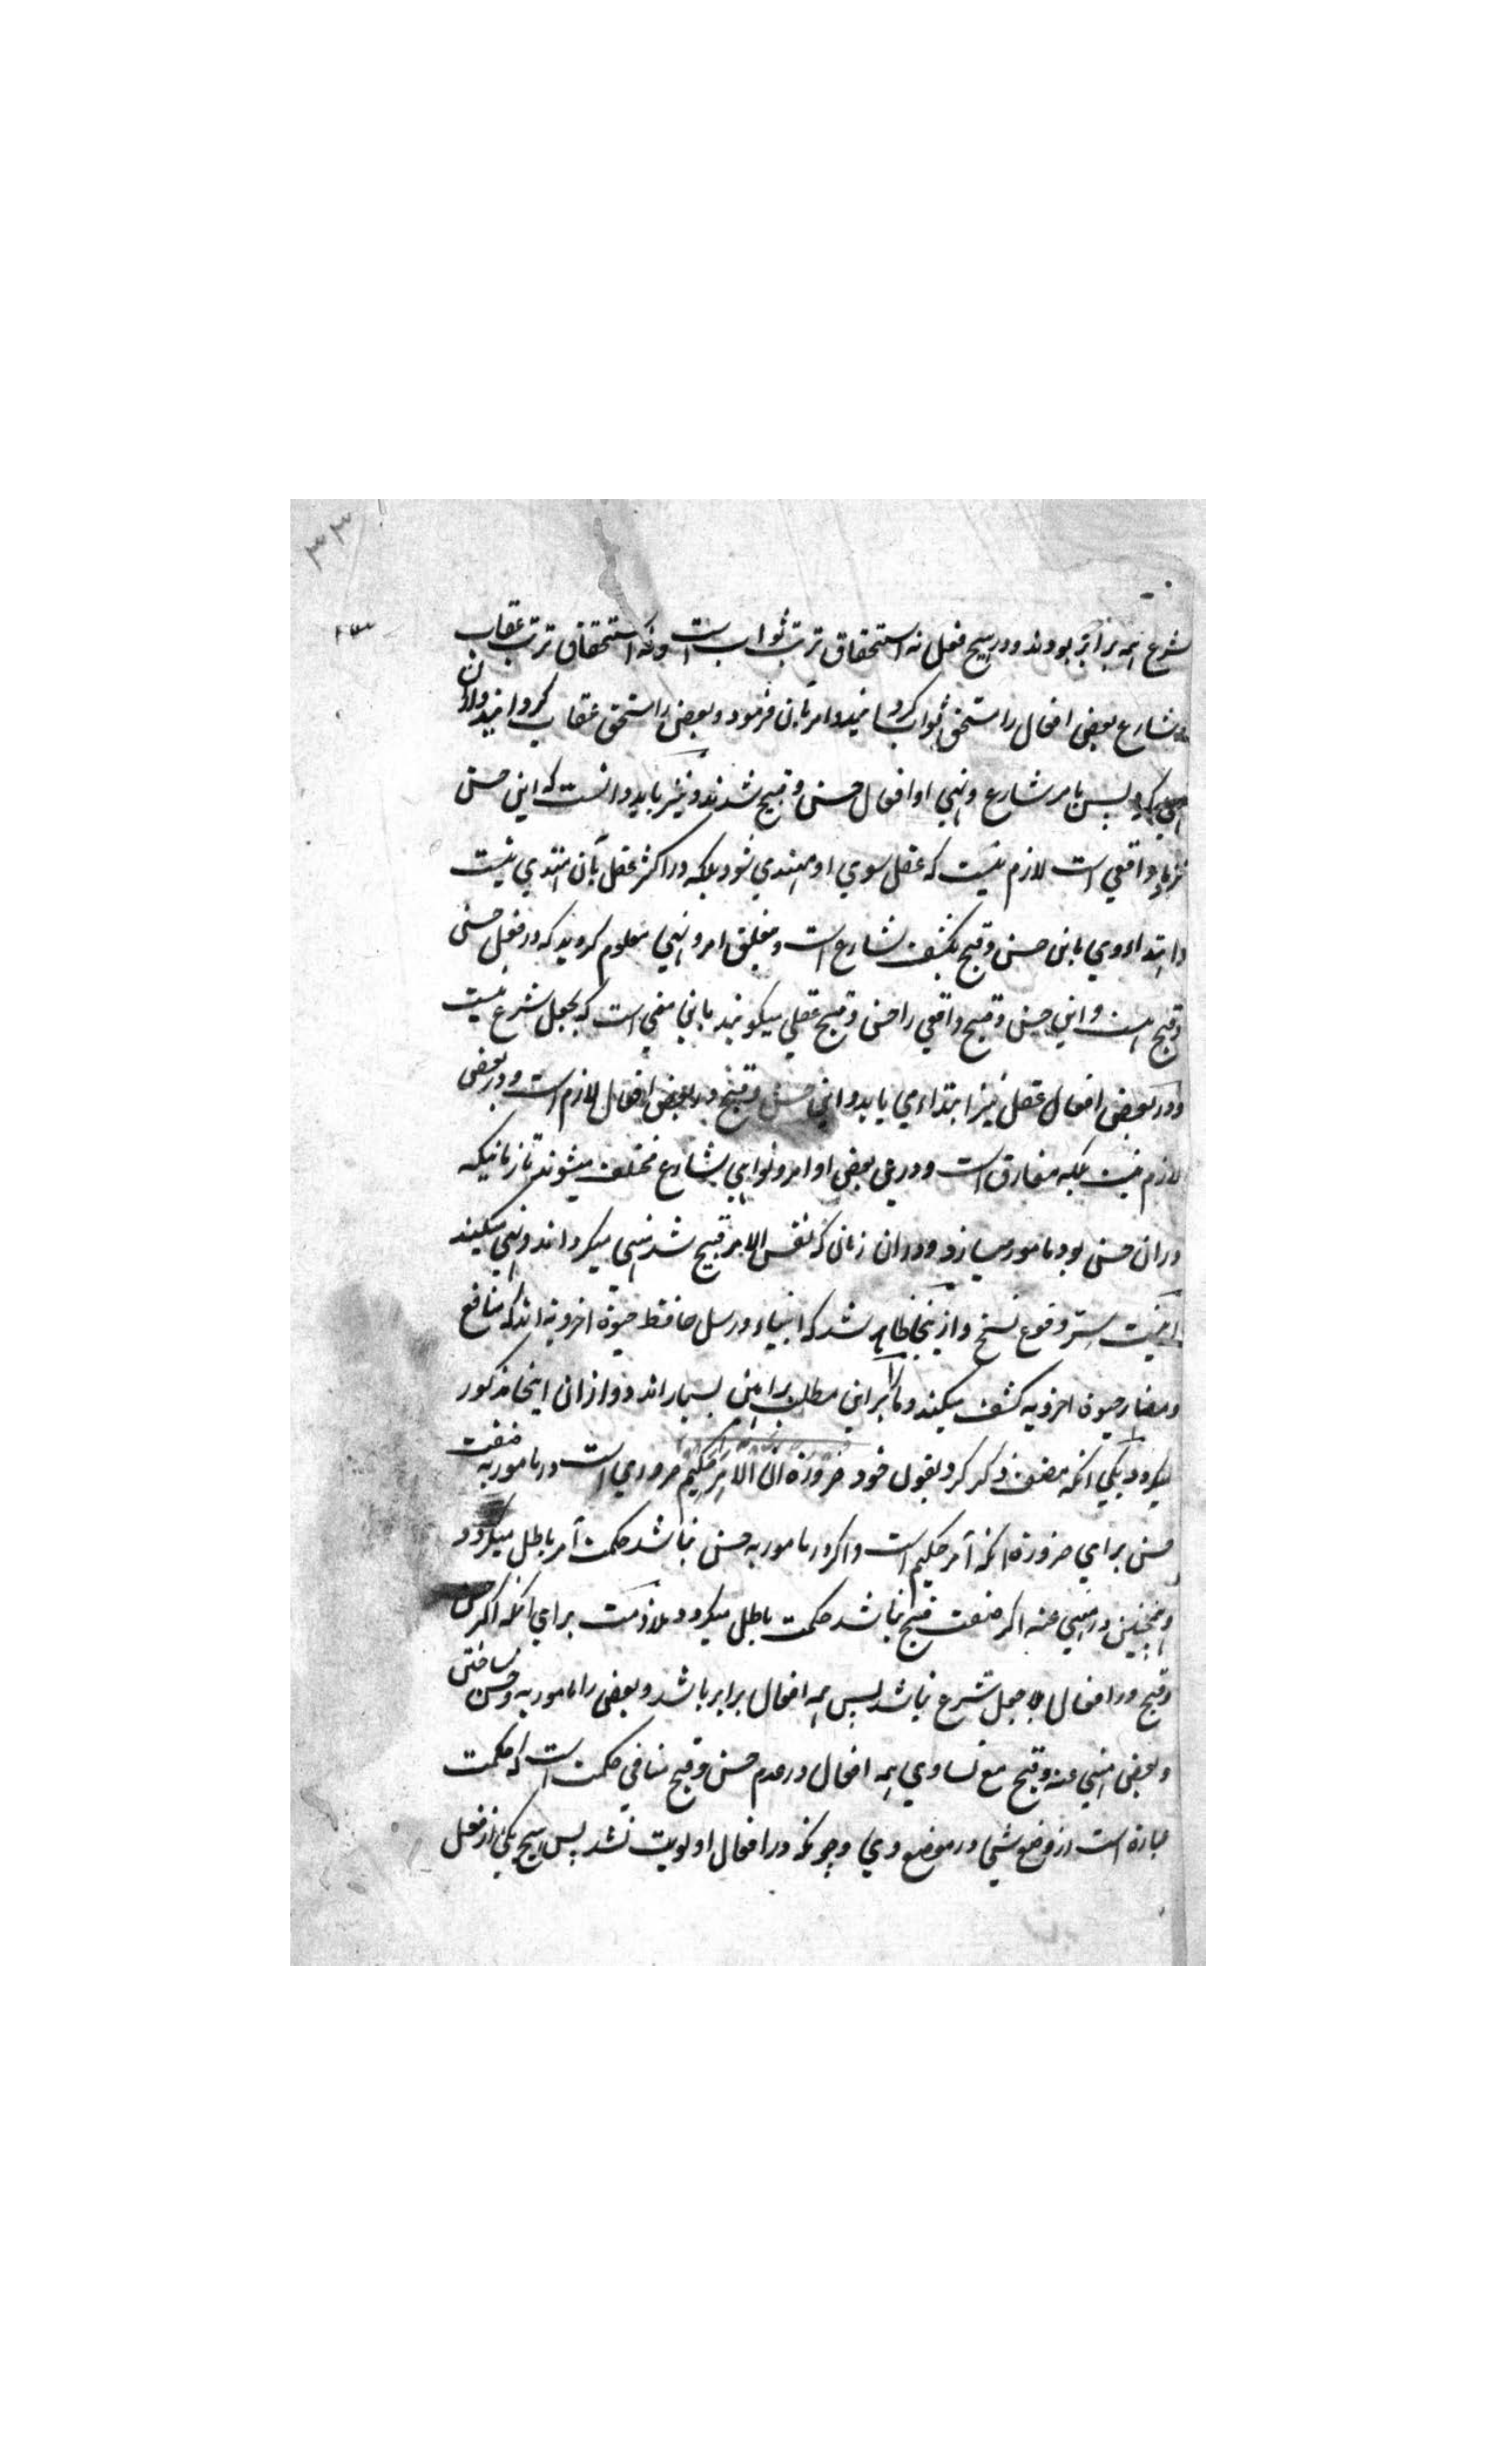 ۳۳
شرع همه برابر بودند و در هیچ فعل نه استحقاق ترتب ثواب است و نه استحقاق ترتب عقاب
شارع بعضی افعال را مستحق ثواب گردانید و امر بآن فرمود و بعضی را مستحق عقاب گردانید و ازان
نهی کرد پس بامر شارع و نهی او افعال حسن و قبیح شدند و نیز باید دانست که این حسن
واقعی است لازم نیست که عقل سوی او مهتدی شود بلکه در اکثر عقل بآن مهتدی نیست
و اهتداء وی باین حسن و قبح بکشف شارع است و بتعلق امر و نهی معلوم گردید که در فعل حسن
و قبح است و این حسن و قبح واقعی را حسن و قبح عقلی میگویند باین معنی است که بجعل شرع نیست
و در بعضی افعال عقل نیز اهتداءی یابد و این حسن و قبح در بعضی افعال لازم است و در بعضی
لازم نیست بلکه مفارق است و در بعضی اوامر و نواهی شارع مختلف میشوند تا زمانیکه
دران حسن بود مامور میسازد و دران زمان که نفس الامر قبیح شد منهی میگرداند و نهی میکند
اینست سر وقوع نسخ و ازینجا ظاهر شد که انبیاء و رسل حافظ حیوة اخرویه اند که منافع
و مضار حیوة اخرویه کشف میکنند و ما را بر این مطلب براهین بسیار اند و ازان اینجا مذکور
میگردد یکی آنکه مصنف ذکر کرد بقول خود ضرورة ان الآمر حکیم ضروری است در مامور به صفت
حسن برای ضرورة آنکه آمر حکیم است و اگر در مامور به حسن نباشد حکمت آمر باطل میگردد
و همچنین در منهی عنه اگر صفت قبح نباشد حکمت باطل میگردد ملازمت برای آنکه اگر حسن
و قبح در افعال بلا جعل شرع نباشد پس همه افعال برابر باشد و بعضی را مامور به و حسن ساختن
و بعضی منهی عنه و قبیح مع تساوی همه افعال در عدم حسن و قبح منافی حکمت است که حکمت
عبارة است از وضع شی در موضع وی و چونکه در افعال اولویت نشد پس هیچ یکی از فعل